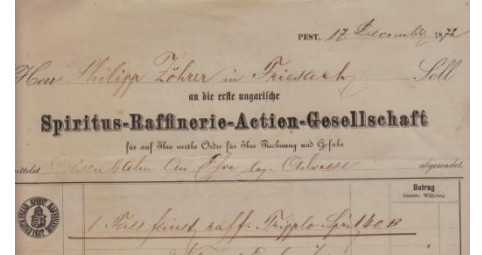 PEST, 17 December 1872
Herr Philipp Zöhrer in Friesach Soll
an die erste ungarische
Spiritus-Raffinerie-Actien-Gesellschaft
für auf Ihre werthe Ordre für Ihre Rechnung und Gefahr
mittelst Eisenbahn an Ihre Adresse abgesendet.
Betrag
1 Fass feinst raff. Tripplo Sprit 40 B